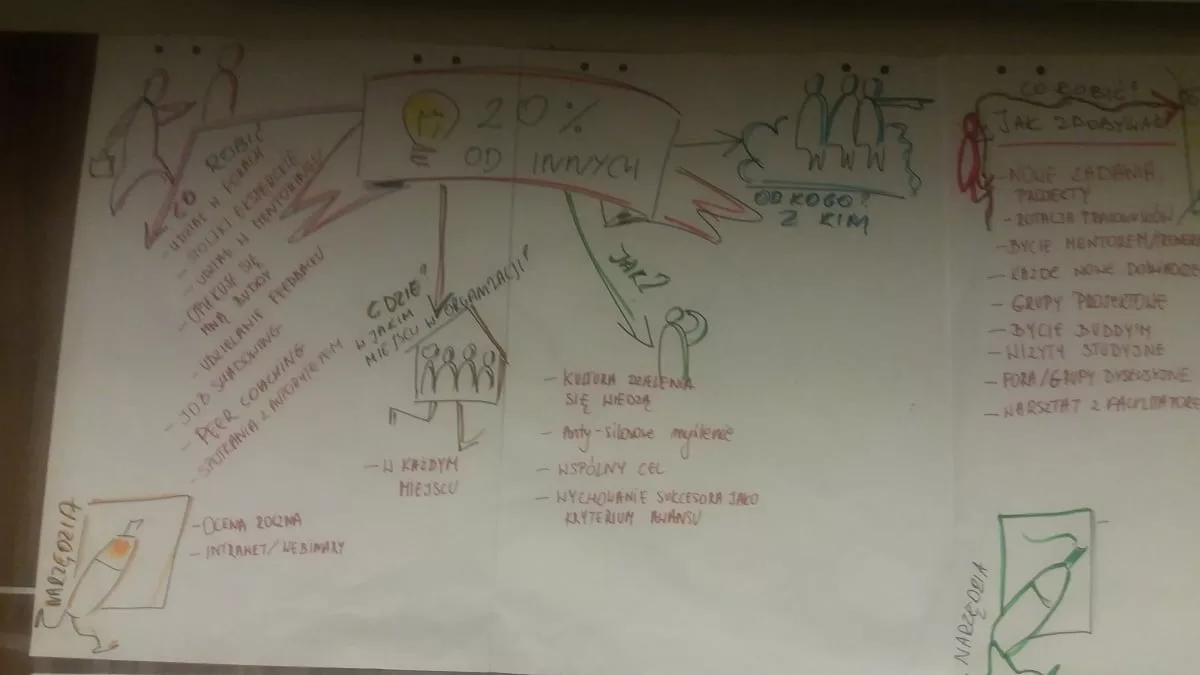 20%
OD INNYCH
CO ROBIĆ
- UDZIAŁ W FORACH
- STOLIKI EKSPERCKIE
- UDZIAŁ W MENTORINGU
- OPIEKUJE SIĘ
MNĄ BUDDY
- UDZIELANIE FEEDBACKU
- JOB SHADOWING
- PEER COACHING
- SPOTKANIA Z AUTORYTETEM
GDZIE?
W JAKIM
MIEJSCU W ORGANIZACJI?
- W KAŻDYM
MIEJSCU
JAK?
- KULTURA DZIELENIA
SIĘ WIEDZĄ
- Anty-silosowe myślenie
- WSPÓLNY CEL
- WYCHOWANIE SUKCESORA JAKO
KRYTERIUM AWANSU
OD KOGO?
Z KIM
NARZĘDZIA
- OCENA ROCZNA
- INTRANET/WEBINARY
CO ROBIĆ?
JAK ZDOBYWAĆ
- NOWE ZADANIA,
PROJEKTY
- ROTACJA PRACOWNIKÓW
- BYCIE MENTOREM/TRENERE
- KAŻDE NOWE DOŚWIADCZ
- GRUPY PROJEKTOWE
- BYCIE BUDDY'M
- WIZYTY STUDYJNE
- FORA/GRUPY DYSKUSYJNE
- WARSZTAT Z FACYLITATORE
NARZĘDZIA